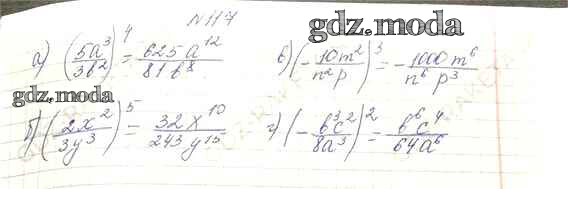 N117
gdz.moda
а) (5a³/3b²)⁴ = 625a¹²/81b⁸ в) (-10m²/n²p)³ = -1000m⁶/n⁶p³
gdz.moda
б) (2x²/3y³)⁵ = 32x¹⁰/243y¹⁵ г) (-b³c²/8a³)² = b⁶c⁴/64a⁶